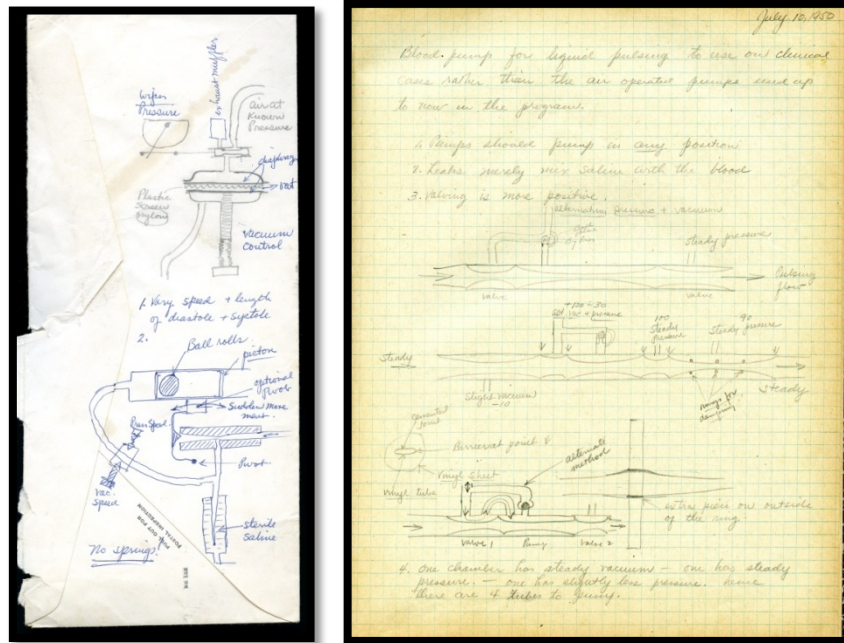 wifes
Pressure
exhaust muffler
Air at
Known
Pressure
diaphragm
vent
Plastic
Screen
nylon
vacuum
control
1. Vary speed + length
of diastole + systole
2.
Ball rolls
piston
optional
Pivots
Sudden move
ment.
Press Speed
Pivot
vac.
speed
sterile
saline
No springs.
POSTAL INSPECTION
July 10, 1950
Blood pump for liquid pulsing to use on clinical
cases rather than the air operated pumps used up
to now in the program.
1. Pumps should pump in any position
2. Leaks merely mix saline with the blood
3. Valving is more positive.
alternating pressure + vacuum
steady pressure
Pulsing
flow
valve
valve
+120 -50
vac + pressure
100
Steady
pressure
90
Steady pressure
Steady
Slight vacuum
-10
rings for
damping
steady
cemented
joint
alternate
method
Vinyl sheet
Vinyl tube
extra piece on outside
of the ring.
valve 1
Pump
valve 2
4. One chamber has steady vacuum — one has steady
pressure. — one has slightly less pressure.
there are 4 tubes to pump.